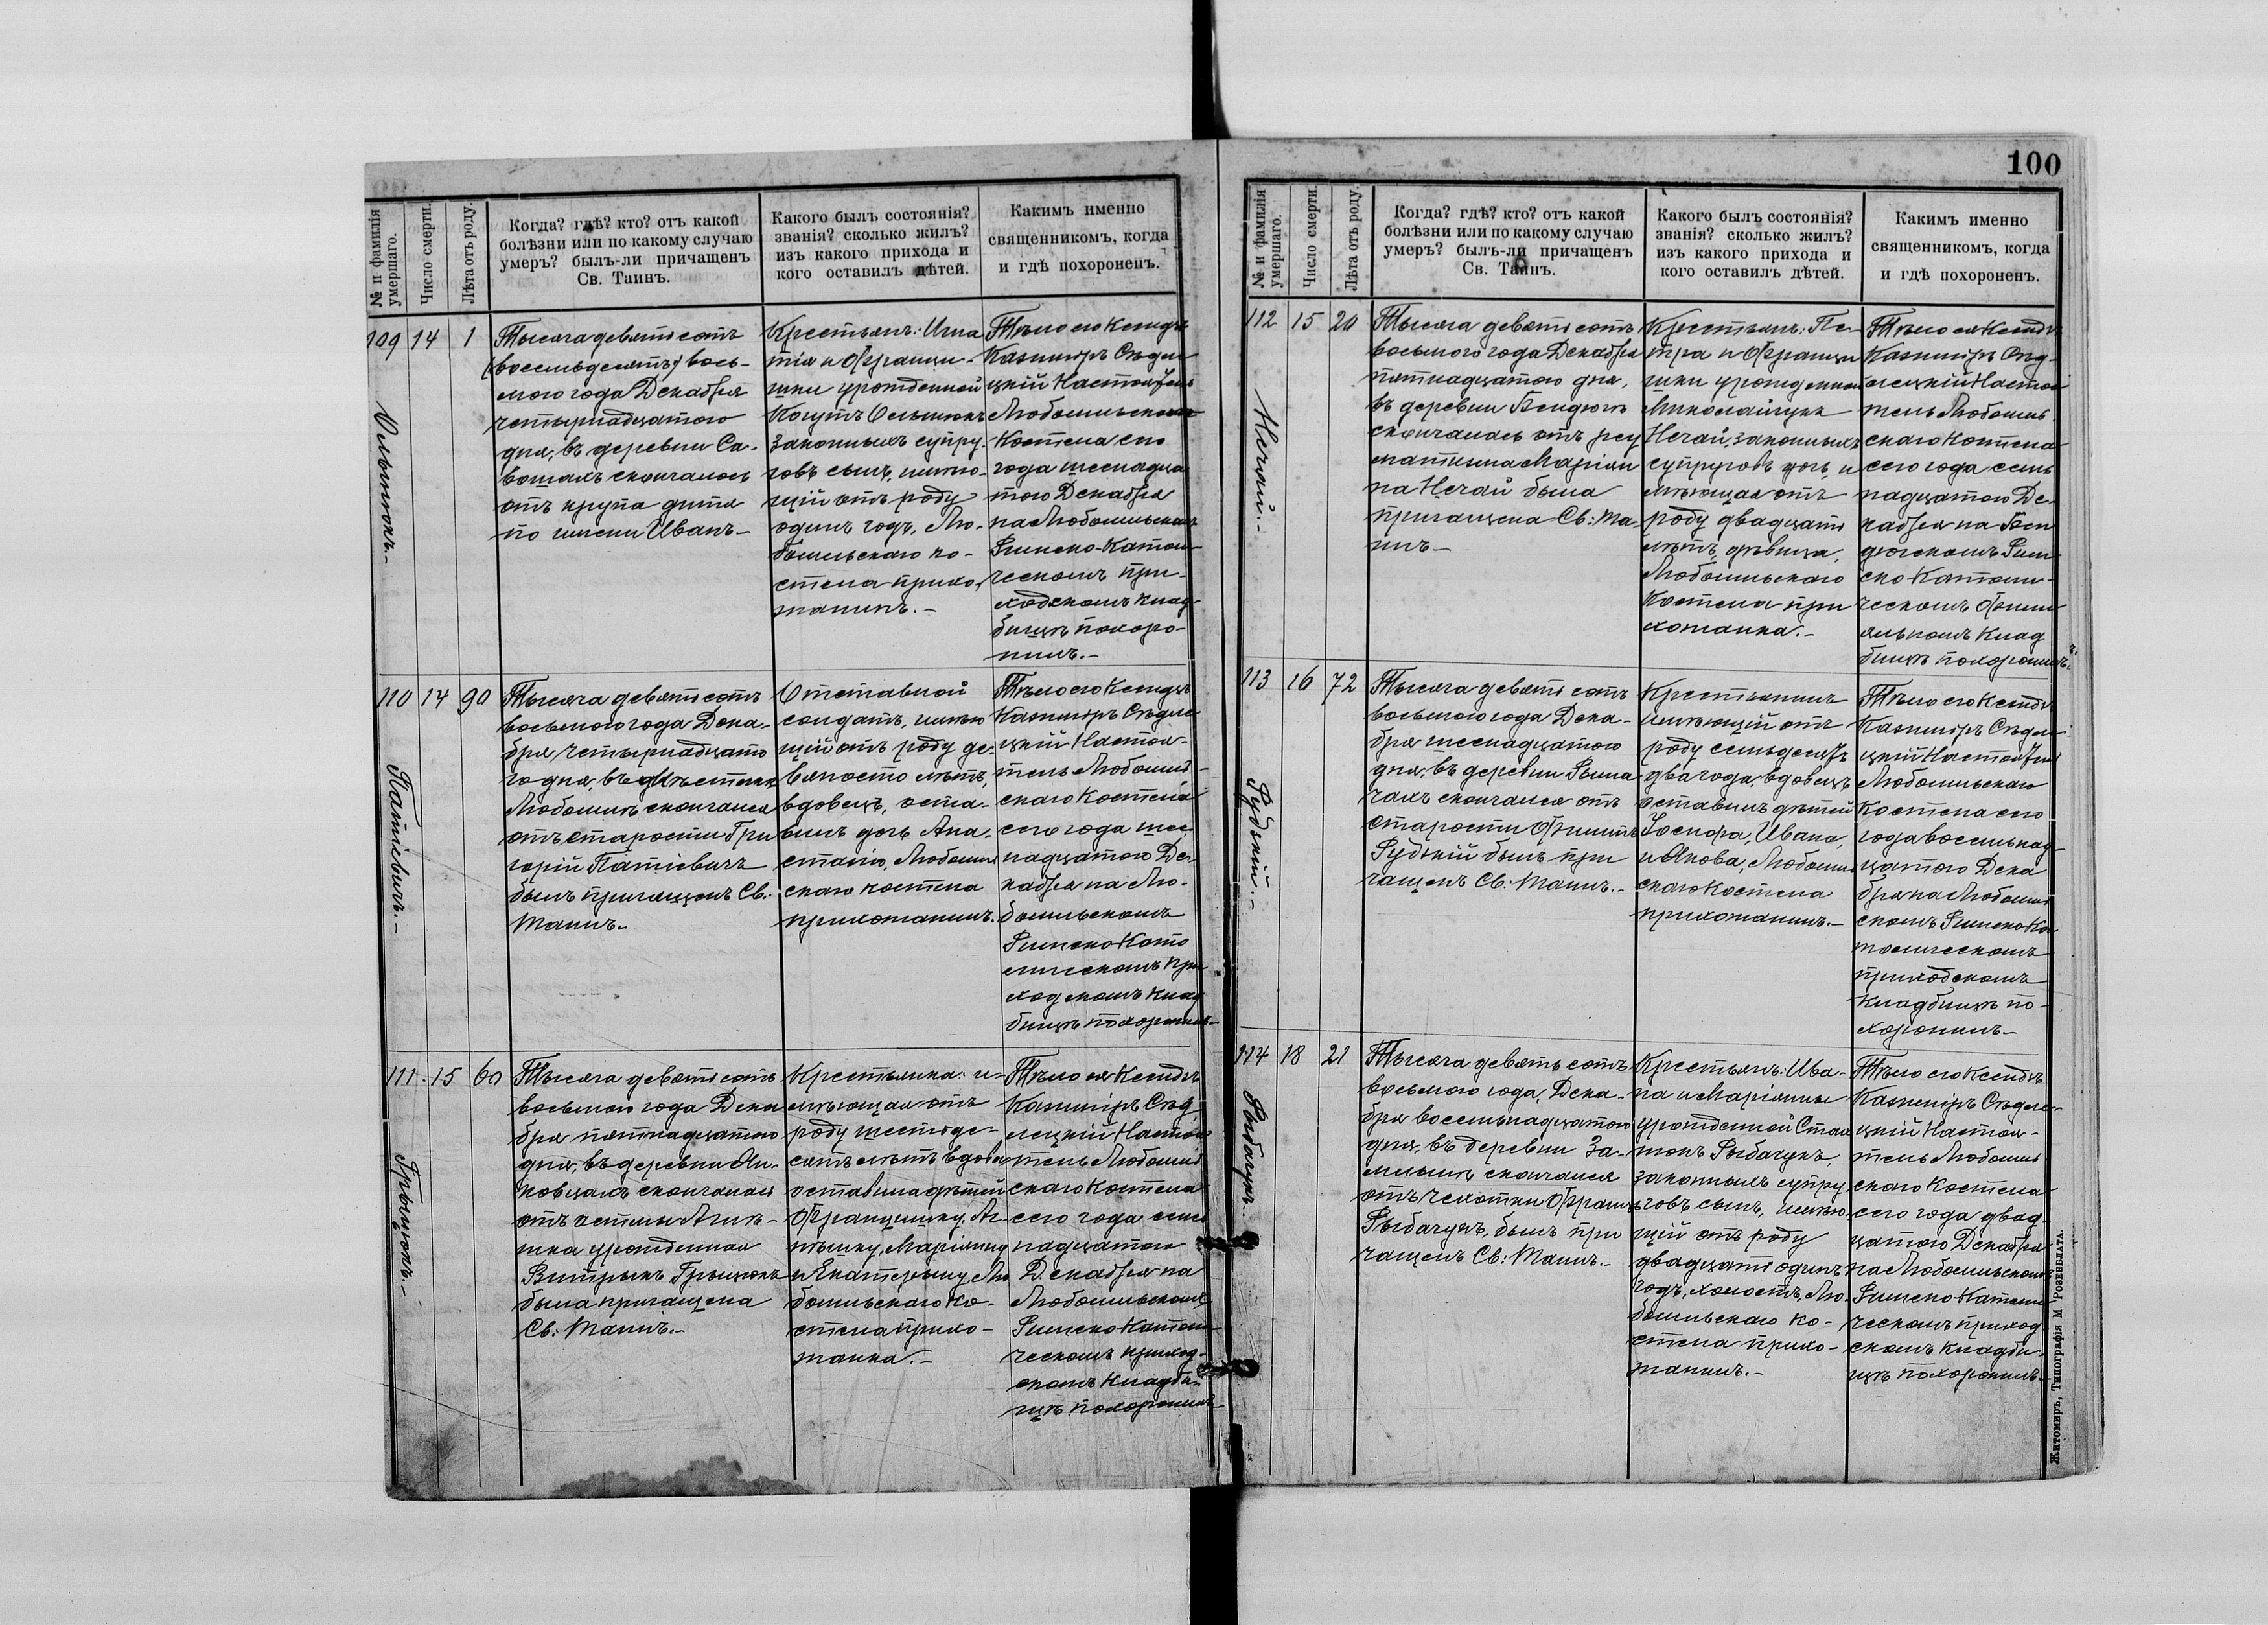 № и фамилія умершаго.
Число смерти.
Лѣта отъ роду.
Когда? гдѣ? кто? отъ какой
болѣзни или по какому случаю
умеръ? былъ-ли причащенъ
Св. Таинъ.
Какого былъ состоянія?
званія? сколько жилъ?
изъ какого прихода и
кого оставилъ дѣтей.
Какимъ именно
священникомъ, когда
и гдѣ похороненъ.
109 14 1
Ольшукъ.-
Тысяча девятьсотъ
(восемьдесятъ) вось-
мого года Декабря
четырнадцатого
дня, въ деревни Са-
вошахъ скончалось
отъ крупа дитя
по имени Иванъ.-
Крестьянъ: Игна
тія и Францы-
шки урожденной
Когутъ Ольшукъ
законныхъ супру-
говъ сынъ, имѣю-
щій отъ роду
одинъ годъ, Лю-
бомльскаго ко-
стела прихо-
жанинъ.-
Тѣло его Ксендзъ
Казиміръ Сѣдле
цкій Настоятель
Любомльскаго
Костела сего
года шеснадца
того Декабря
на Любомльскомъ
Римско-Католи
ческомъ при-
ходскомъ клад-
бищѣ похоро-
нилъ.-
110 14 90
Патіевичъ.-
Тысяча девятьсотъ
восьмого года Дека-
бря четырнадцато
го дня, въ мѣстечкѣ
Любомлѣ скончался
отъ старости Гри
горій Патіевичъ
былъ причащенъ Св.
Таинъ.-
Отставной
солдатъ, имѣю
щій отъ роду де-
вяносто лѣтъ,
вдовецъ, оста-
вилъ дочь Ана-
стасію, Любомль
скаго костела
прихожанинъ.
Тѣло его Ксендзъ
Казиміръ Сѣдле
цкій Настоя-
тель Любомль-
скаго Костела
сего года шес
надцатого Де-
кабря на Лю-
бомльскомъ
Римско Като
лическомъ при
ходскомъ клад
бищѣ похоронилъ.-
111 15 60
Грыцюкъ.-
Тысяча девятьсотъ
восьмого года Дека
бря пятнадцатого
дня, въ деревни Ян-
ковцахъ скончалась
отъ астмы Агнѣ-
шка урожденная
Витрыкъ Грыцюкъ
была причащена
Св: Таинъ.-
Крестьянка: и-
мѣющая отъ
роду шестьде-
сятъ лѣтъ вдова
оставила дѣтей
Францишку, Аг-
нѣшку, Маріянну
и Екатерину, Лю
бомльскаго ко-
стела прихо-
жанка.-
Тѣло ея Ксендзъ
Казиміръ Сѣд
лецкій Настоя
тель Любомль
скаго Костела
сего года семь
надцатого
Декабря на
Любомльскомъ
Римско Католи
ческомъ приход-
скомъ кладби-
щѣ похоронилъ.
100
№ и фамилія умершаго.
Число смерти.
Лѣта отъ роду.
Когда? гдѣ? кто? отъ какой
болѣзни или по какому случаю
умеръ? былъ-ли причащенъ
Св. Таинъ.
Какого былъ состоянія?
званія? сколько жилъ?
изъ какого прихода и
кого оставилъ дѣтей.
Какимъ именно
священникомъ, когда
и гдѣ похороненъ.
112 15 20
Нечай.-
Тысяча девятьсотъ
восьмого года Декабря
пятнадцатого дня,
въ деревни Бендюгѣ
скончалась отъ рев
матизма Маріян
на Нечай была
причащена Св: Та-
инъ.-
Крестьянъ: Пе-
тра и Францы
шки урожденной
Миколайчукъ
Нечай, законныхъ
супруговъ дочь, и
мѣющая отъ
роду двадцать
лѣтъ, дѣвица,
Любомльскаго
Костела при
хожанка.-
Тѣло ея Ксендзъ
Казиміръ Сѣд-
лецкій Настоя
тель Любомль
скаго Костела
сего года семь
надцатого Де-
кабря на Бен
дюгскомъ Рим-
ско Католи-
ческомъ Фили-
яльномъ клад
бищѣ похоронилъ.
113 16 72
Рудзкій.-
Тысяча девятьсотъ
восьмого года Дека-
бря шеснадцатого
дня, въ деревни Рыма
чахъ скончался отъ
старости Филиппъ
Рудзкій былъ при
чащенъ Св: Таинъ.-
Крестьянинъ
имѣющій отъ
роду семьдесятъ
два года, вдовецъ
оставилъ дѣтей
Іосифа, Ивана,
и Якова, Любомль
скаго Костела
прихожанинъ.-
Тѣло его Ксендзъ
Казиміръ Сѣдле
цкій Настоятель
Любомльскаго
Костела сего
года восемьнад
цатого Дека
бря на Любомль
скомъ Римско Ка
толическомъ
приходскомъ
кладбищѣ по-
хоронилъ.-
114 18 21
Рибачукъ.-
Тысяча девятьсотъ
восьмого года, Дека-
бря восемьнадцатого
дня, въ деревни За-
млыню скончался
отъ чехотки Францъ
Рыбачукъ, былъ при
чащенъ Св: Таинъ.-
Крестьянъ: Ива-
на и Маріянны
урожденной
Рыбачукъ,
законныхъ супру
говъ сынъ, имѣю-
щій отъ роду
двадцать одинъ
годъ, холостъ, Лю-
бомльскаго ко-
стела прихо-
жанинъ.-
Тѣло его Ксендзъ
Казиміръ Сѣдле-
цкій Настоя-
тель Любомль
скаго Костела
сего года двад-
цатого Декабря
на Любомльскомъ
Римско-Католи
ческомъ приход-
скомъ кладби-
щѣ похоронилъ.-
Житомиръ, Типографія М Розенблата.